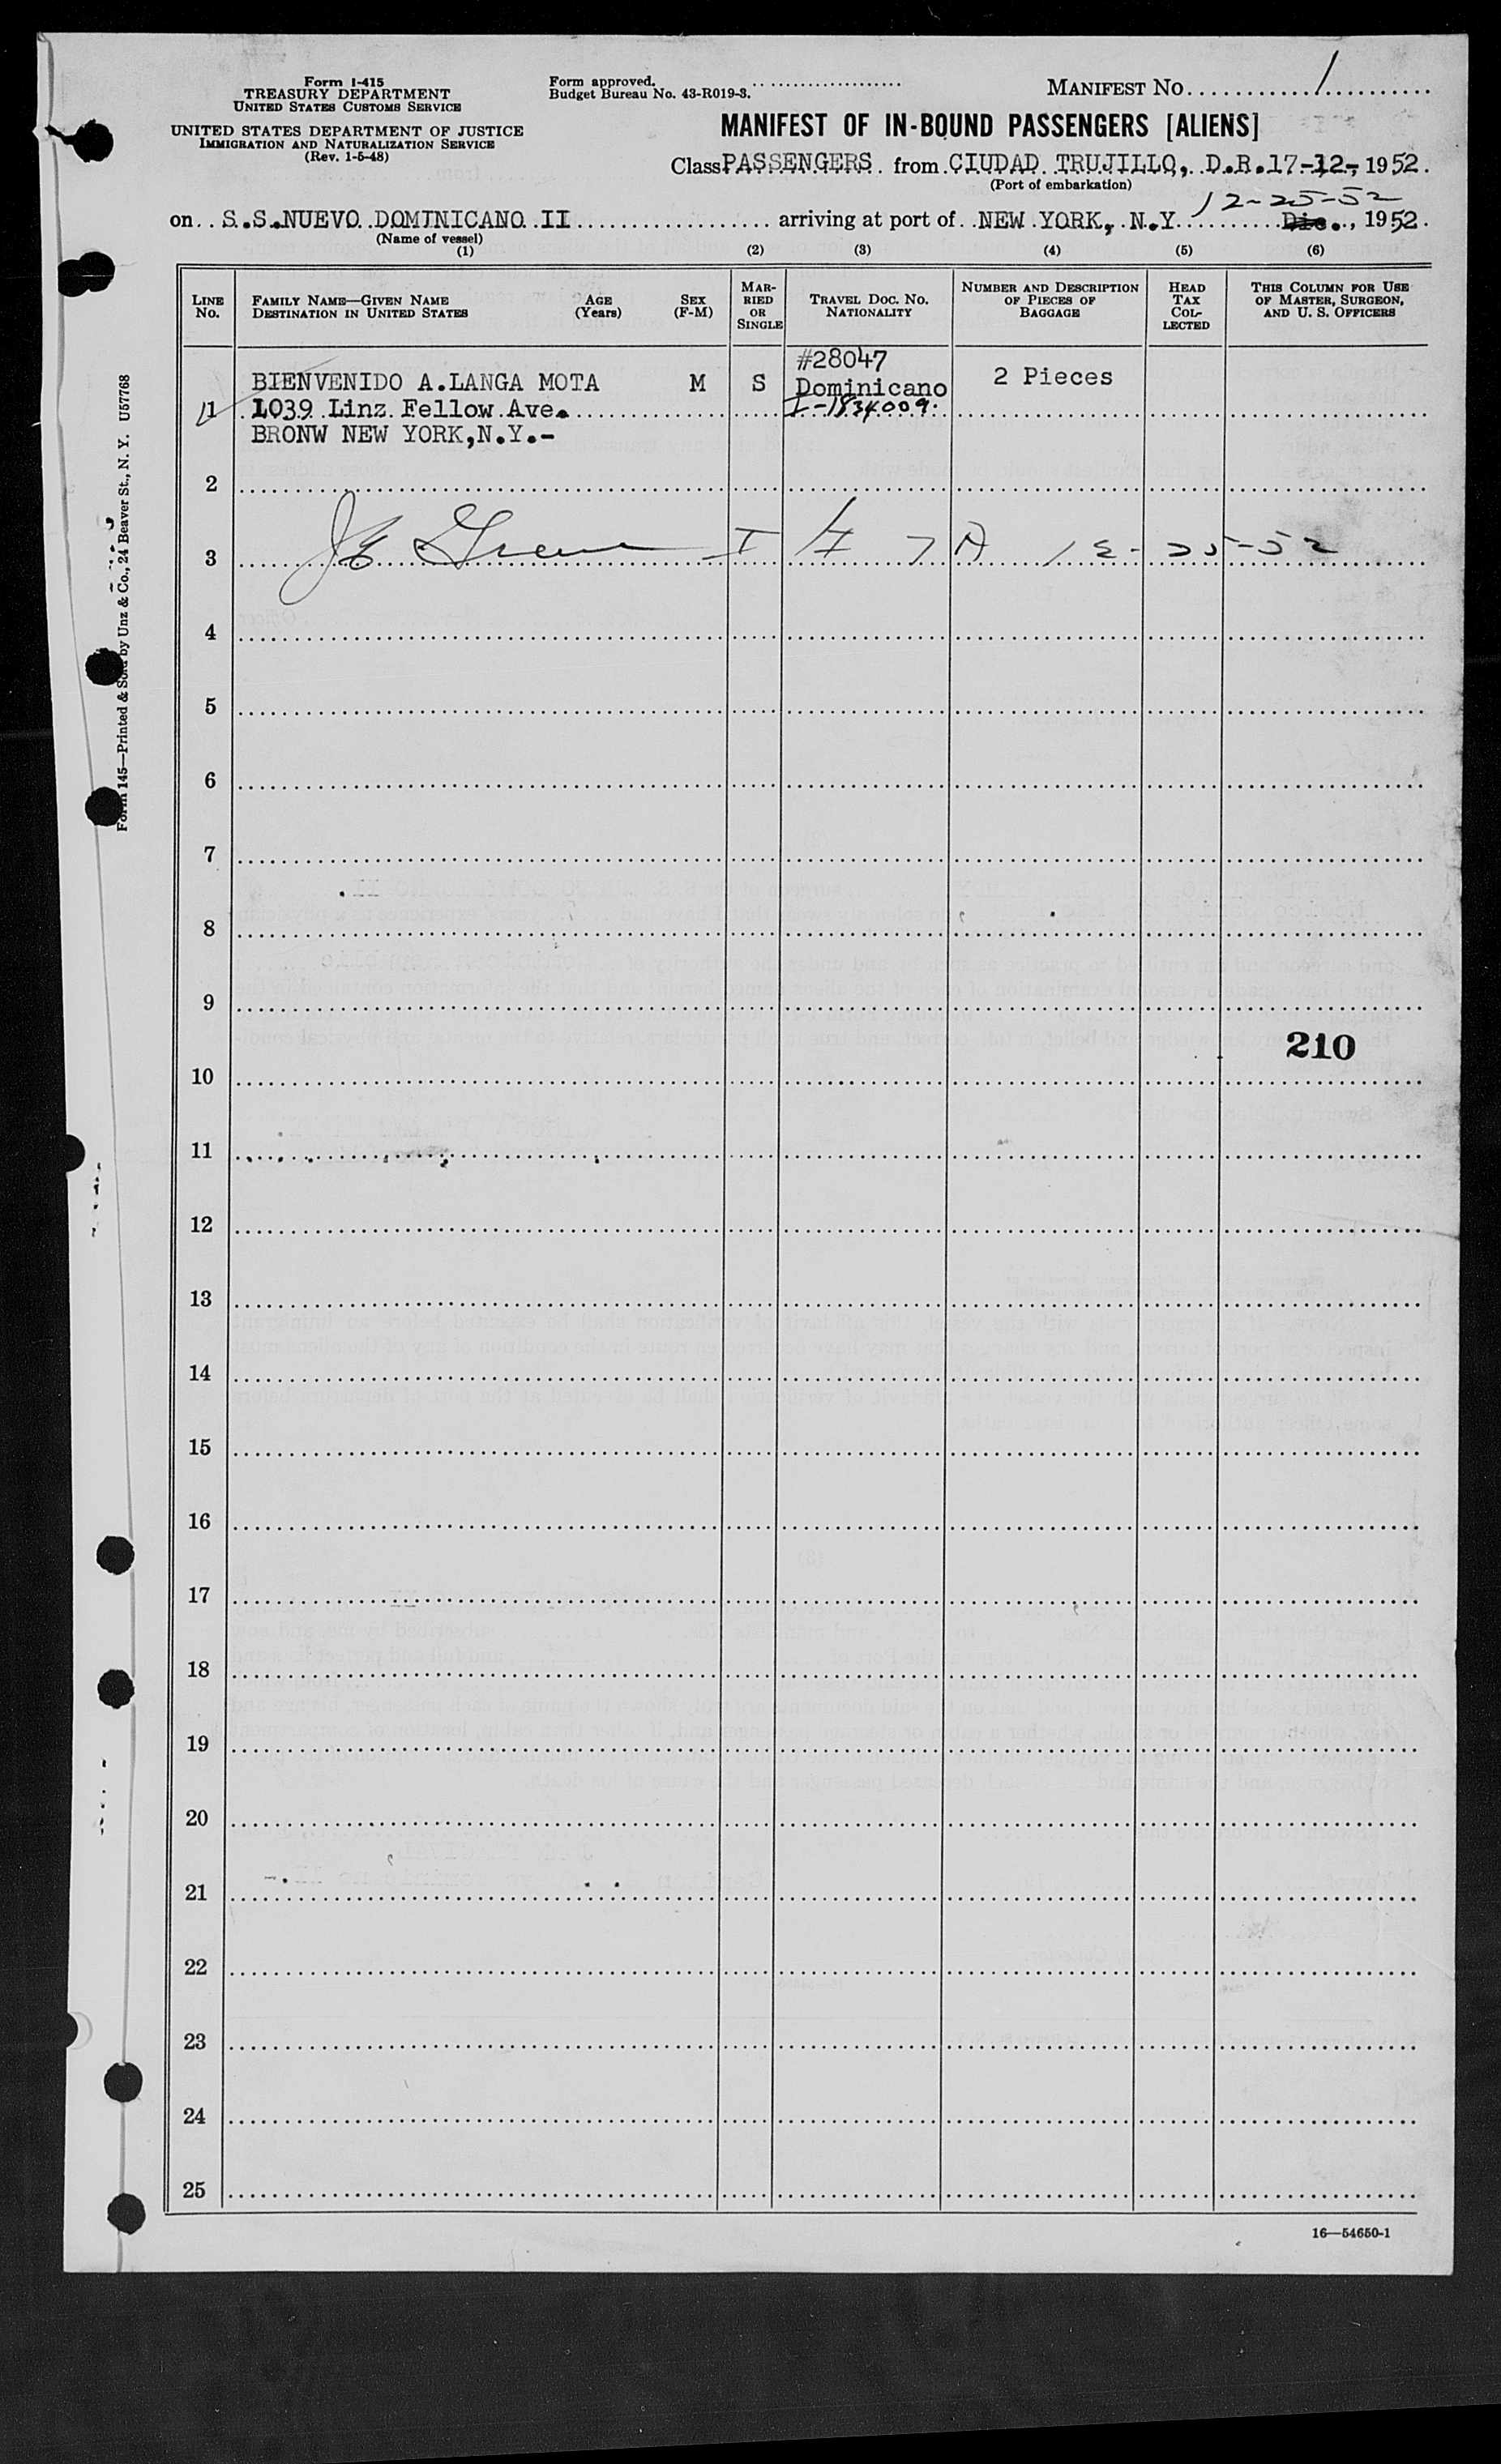 Form I-415
TREASURY DEPARTMENT
UNITED STATES CUSTOMS SERVICE
UNITED STATES DEPARTMENT OF JUSTICE
IMMIGRATION AND NATURALIZATION SERVICE
(Rev. 1-5-48)
Form approved.
Budget Bureau No. 43-R019-3.
MANIFEST NO. 1
MANIFEST OF IN-BOUND PASSENGERS [ALIENS]
Class PASSENGERS from CIUDAD TRUJILLO, D.R. 17-12-, 1952.
(Port of embarkation)
12-25-52
on S.S.NUEVO DOMINICANO II arriving at port of NEW YORK, N.Y. Dic., 1952.
(Name of vessel)
(1) (2) (3) (4) (5) (6)
LINE NO. FAMILY NAME—GIVEN NAME DESTINATION IN UNITED STATES AGE (Years) SEX (F-M) MARRIED OR SINGLE TRAVEL DOC. NO. NATIONALITY NUMBER AND DESCRIPTION OF PIECES OF BAGGAGE HEAD TAX COLLECTED THIS COLUMN FOR USE OF MASTER, SURGEON, AND U. S. OFFICERS
#28047
BIENVENIDO A.LANGA MOTA M S Dominicano 2 Pieces
1 1039 Linz Fellow Ave. I-1834009.
BRONW NEW YORK,N.Y.-
2
3 12-25-52
4
5
6
7
8
9
210
10
11
12
13
14
15
16
17
18
19
20
21
22
23
24
25
16—54650-1
Form 145—Printed & Sold by Unz & Co., 24 Beaver St., N. Y. U57768